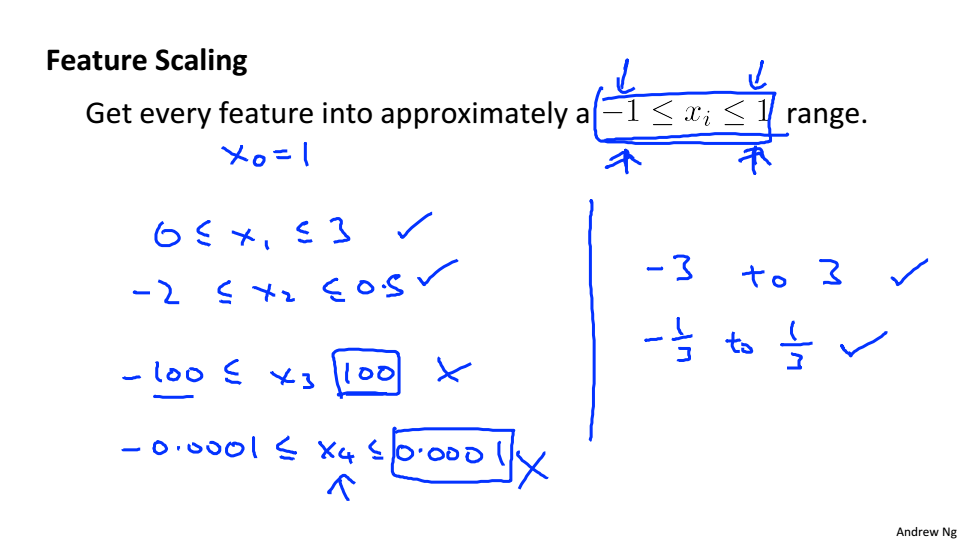 Feature Scaling
Get every feature into approximately a -1 ≤ xᵢ ≤ 1 range.
x₀ = 1
0 ≤ x₁ ≤ 3 ✓
-2 ≤ x₂ ≤ 0.5 ✓
-100 ≤ x₃ 100 ×
-0.0001 ≤ x₄ ≤ 0.0001 ×
-3 to 3 ✓
-1/3 to 1/3 ✓
Andrew Ng